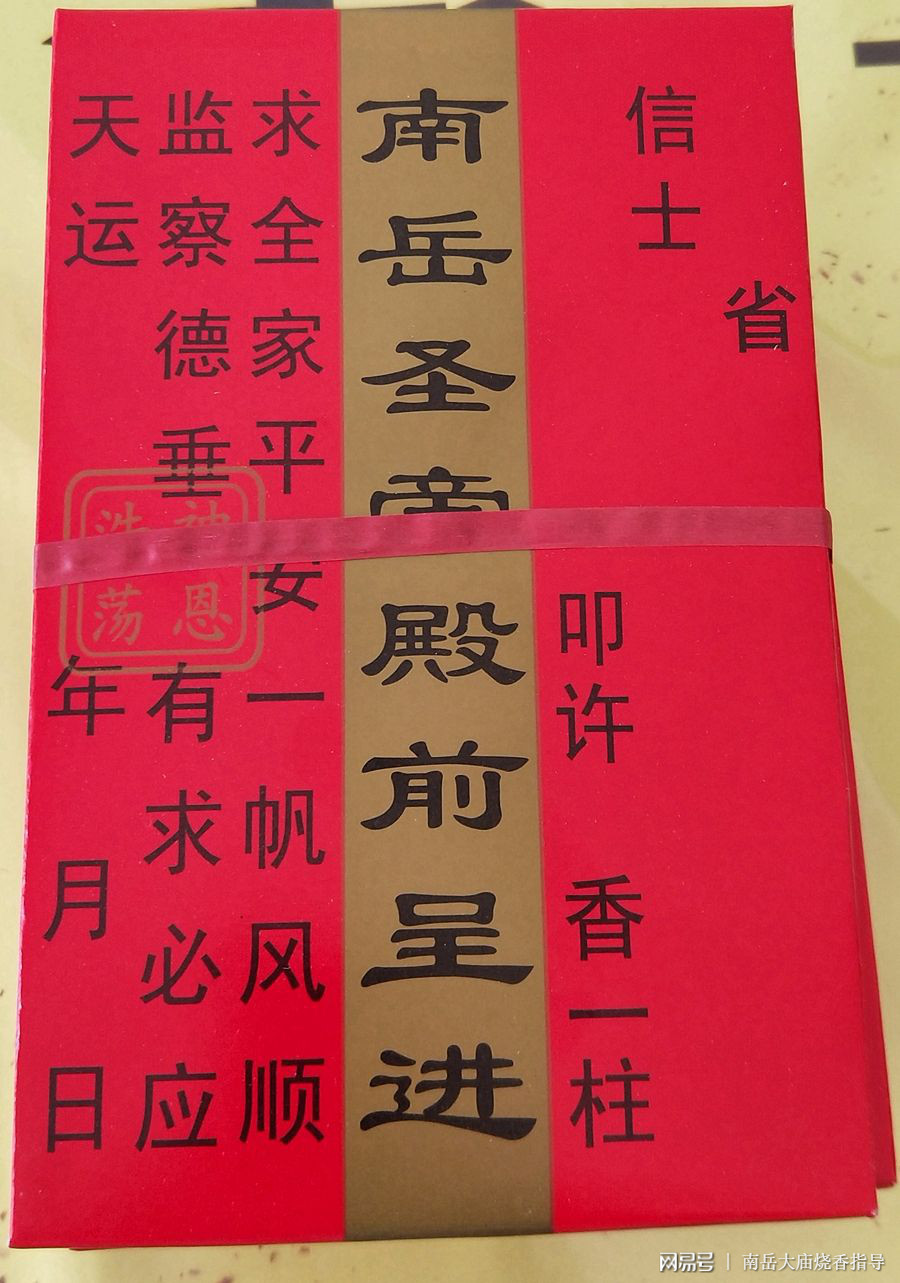 省
信士
叩许 香一柱
南岳圣帝殿前呈进
求全家平安一帆风顺
监察德垂 有求必应
天运 年 月 日
神恩
浩荡
网易号 | 南岳大庙烧香指导